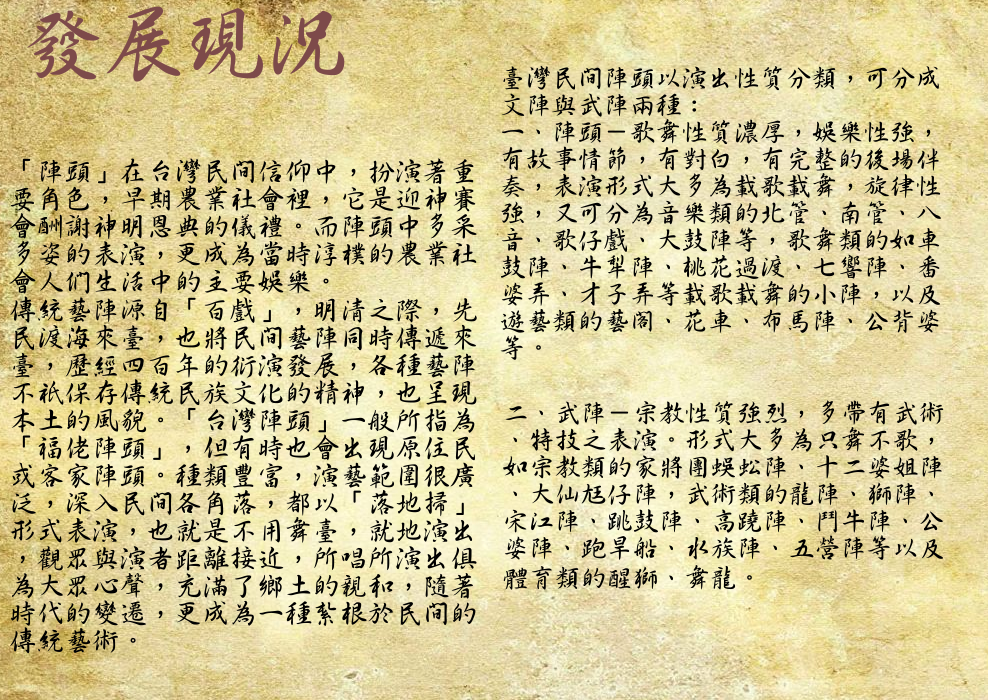 發展現況
「陣頭」在台灣民間信仰中，扮演著重
要角色，早期農業社會裡，它是迎神賽
會酬謝神明恩典的儀禮。而陣頭中多采
多姿的表演，更成為當時淳樸的農業社
會人们生活中的主要娛樂。
傳統藝陣源自「百戲」，明清之際，先
民渡海來臺，也將民間藝陣同時傳遞來
臺，歷經四百年的衍演發展，各種藝陣
不祇保存傳統民族文化的精神，也呈現
本土的風貌。「台灣陣頭」一般所指為
「福佬陣頭」，但有時也會出現原住民
或客家陣頭。種類豐富，演藝範圍很廣
泛，深入民間各角落，都以「落地掃」
形式表演，也就是不用舞臺，就地演出
，觀眾與演者距離接近，所唱所演出俱
為大眾心聲，充滿了鄉土的親和，隨著
時代的變遷，更成為一種紮根於民間的
傳統藝術。
臺灣民间陣頭以演出性質分類，可分成
文陣與武陣兩種：
一、陣頭－歌舞性質濃厚，娛樂性強，
有故事情節，有對白，有完整的後場伴
奏，表演形式大多為載歌載舞，旋律性
強，又可分為音樂類的北管、南管、八
音、歌仔戲、大鼓陣等，歌舞類的如車
鼓陣、牛犁陣、桃花過渡、七響陣、番
婆弄、才子弄等載歌載舞的小陣，以及
遊藝類的藝閣、花車、布馬陣、公背婆
等。
二、武陣－宗教性質強烈，多帶有武術
、特技之表演。形式大多為只舞不歌，
如宗教類的家將團蜈蚣陣、十二婆姐陣
、大仙尪仔陣，武術類的龍陣、獅陣、
宋江陣、跳鼓陣、高蹺陣、鬥牛陣、公
婆陣、跑旱船、水族陣、五營陣等以及
體育類的醒獅、舞龍。